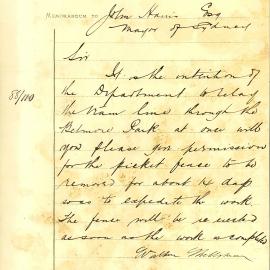 MEMORANDUM TO John Harris Esq
Mayor of Sydney
Sir
88/110
It is the intention of
the Department to relay
the tram line through the
Belmore Park at once will
you please give permission
for the picket fence to be
removed for about 14 days
to expedite the work
The fence will be re erected
as soon as the work is completed